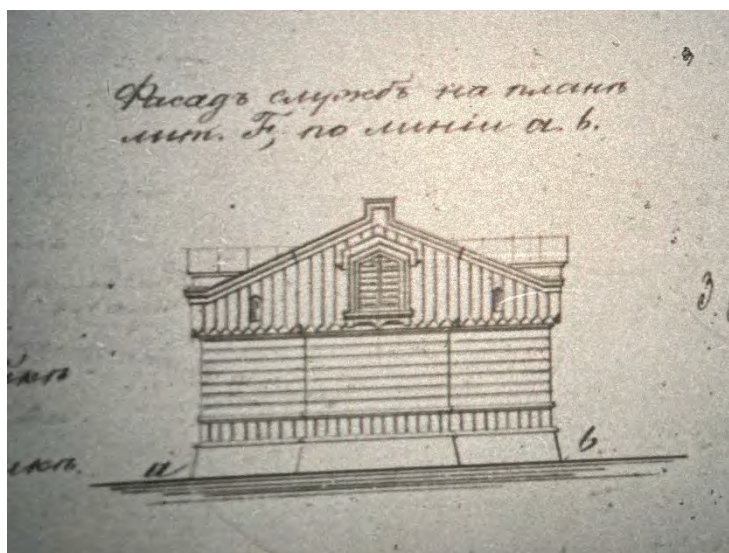 Фасадъ службъ на планѣ
лит. F, по линіи a. b.
З
a
b.